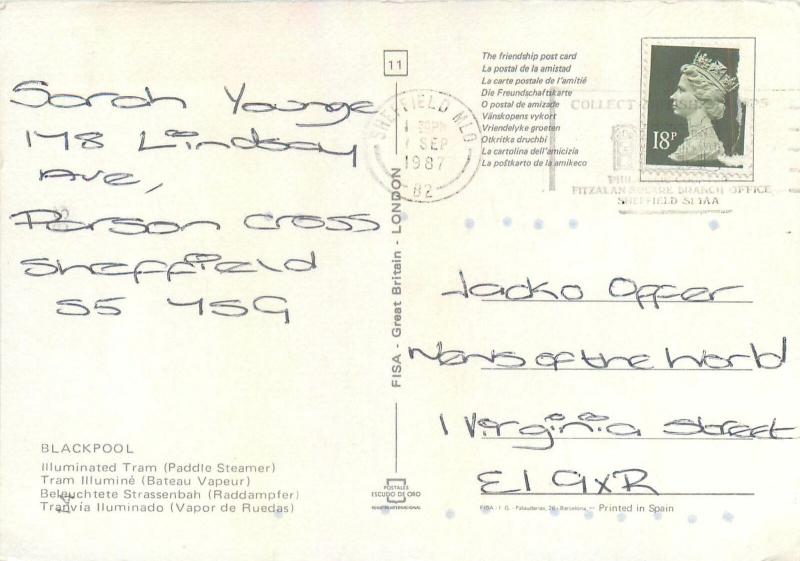 Sarah Younge
178 Lindsay
Ave,
Parson Cross
Sheffield
S5 7SG
BLACKPOOL
Illuminated Tram (Paddle Steamer)
Tram Illuminé (Bateau Vapeur)
Beleuchtete Strassenbah (Raddampfer)
Tranvía Iluminado (Vapor de Ruedas)
11
FISA - Great Britain - LONDON
POSTALES
ESCUDO DE ORO
The friendship post card
La postal de la amistad
La carte postale de l'amitié
Die Freundschaftskarte
O postal de amizade
Vänskopens vykort
Vriendelyke groeten
Otkritka druchbi
La cartolina dell'amicizia
La poŝtkarto de la amikeco
SHEFFIELD MLO
SEP
1987
82
COLLECT
18P
FITZALAN SQUARE BRANCH OFFICE
SHEFFIELD S1 1AA
Jacko Offer
News of the World
1 Virginia Street
E1 9XR
FISA - I. G. - Palaudarias, 26 - Barcelona - Printed in Spain